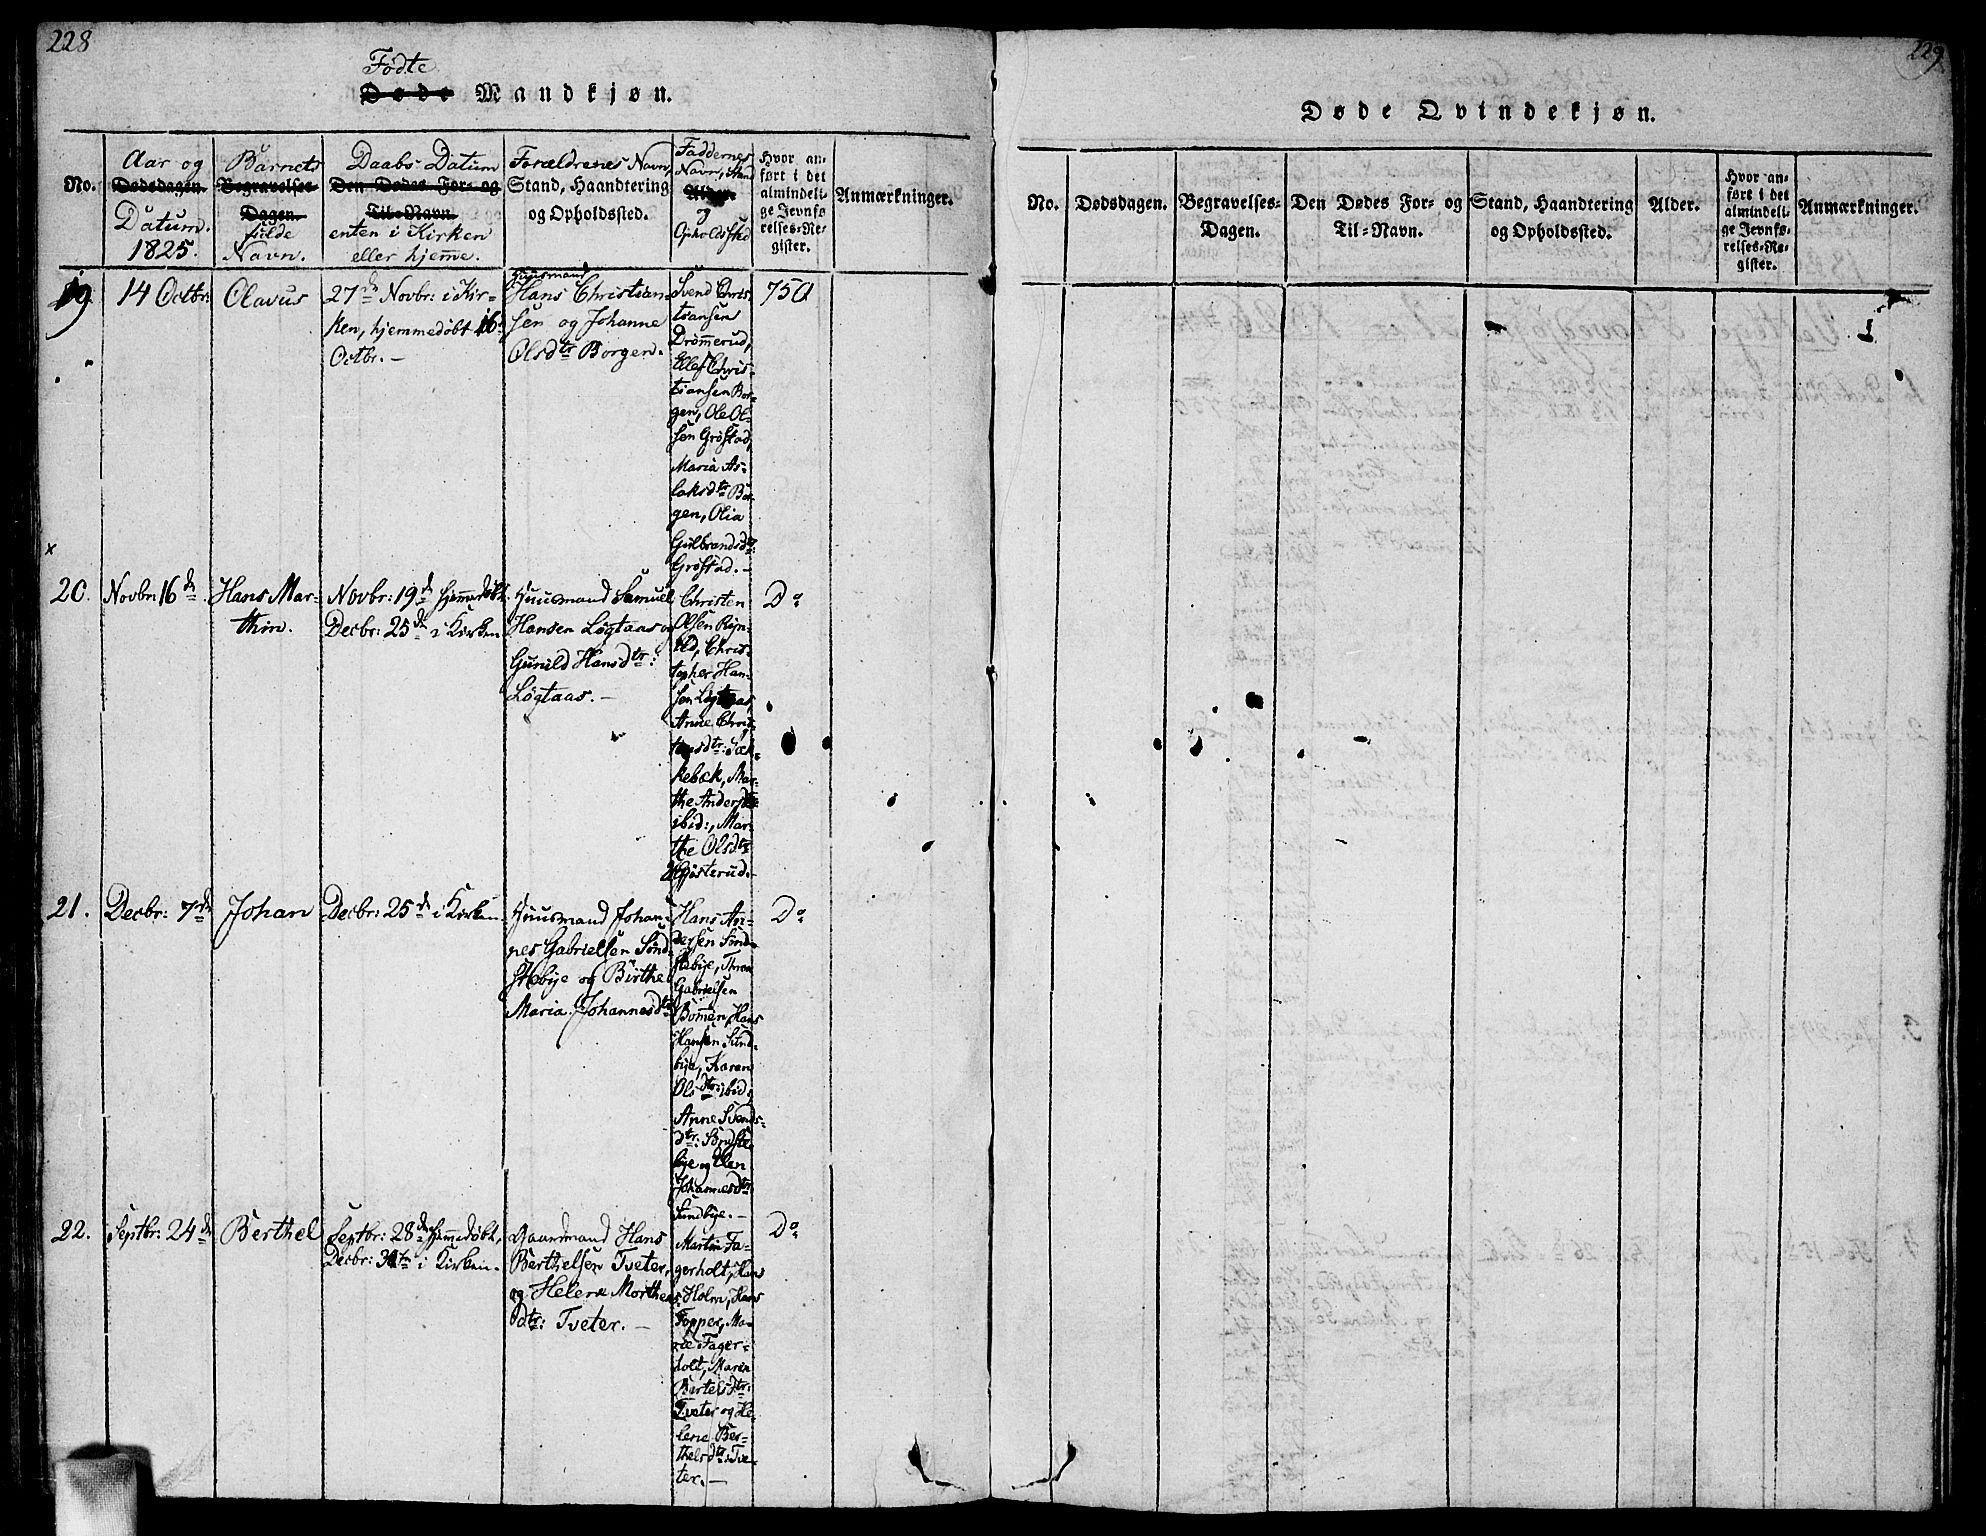 228
Fødte
Døde Mandkjøn.
No.
Aar og
Dødsdagen.
Datum.
1825.
Barnets
Begravelses-
Dagen.
fulde
Navn.
Daabs Datum
Den Dødes For- og
Til-Navn.
enten i Kirken
eller hjemme.
Forældrenes Navn,
Stand, Haandtering
og Opholdssted.
Faddernes
Navn, Stand
Alder.
og
Opholdssted
Hvor an-
ført i det
almindeli-
ge Jevnfø-
relses-Re-
gister.
Anmærkninger.
19
14 Octbr:
Olavus
27de Novbr: i Kir-
ken, hjemmedøbt 16
Octbr. –
Huusmand
Hans Christian-
sen og Johanne
Olsdtr Borgen.
Svend Chris-
tiansen
Drømmerud,
Ellef Chris-
tiansen Bor-
gen, Ole Ol-
sen Grøstad,
Maria As-
laksdtr Bor-
gen, Olia
Gulbrandsdtr
Grøstad. –
750
x
20.
Novbr 16de
Hans Mar-
thin.
Novbr: 19d hjemmedøbt.
Decbr: 25de i Kirken
Huusmand Samuel
Hansen Løgtaas og
Gunild Hansdtr:
Løgtaas. –
Christen
Olsen
Chris-
topher Han-
sen Løgtaas,
Anne Chris-
tensdtr:
kebæk, Mar-
the Andersdtr
ibid:, Mar-
the Olsdtr
Do
21.
Decbr: 7de
Johan
Decbr: 25de i Kirken
Huusmand Johan-
nes Gabrielsen Sønd-
stebye og Birthe
Maria Johannesdtr
Hans An-
dersen Sønd-
stebye, Thron
Gabrielsen
Bommen, Hans
Hansen Sund-
bye, Karen
Olsdtr: ibid,
Anne Svends-
dtr: Søndste-
bye og Elen
Johannesdtr
Sundbye. –
Do
22.
Septbr: 24de
Berthel
Septbr: 28de hjemmedøbt,
Decbr: i Kirken.
Gaardmand Hans
Berthelsen Tveter,
og Helene Morthens
dtr: Tveter. –
Martin Fa-
gerholt, Hans
Holm, Hans
Topper, Ma-
rie Fager-
holt, Maren
Bertelsdtr:
Tveter og He-
lene Ber-
thelsdtr: Tve-
ter. –
Do
229
Døde Qvindekjøn.
No.
Dødsdagen.
Begravelses-
Dagen.
Den Dødes For- og
Til-Navn.
Stand, Haandtering
og Opholdssted.
Alder.
Hvor an-
ført i det
almindeli-
ge Jevnfø-
relses-Re-
gister.
Anmærkninger.